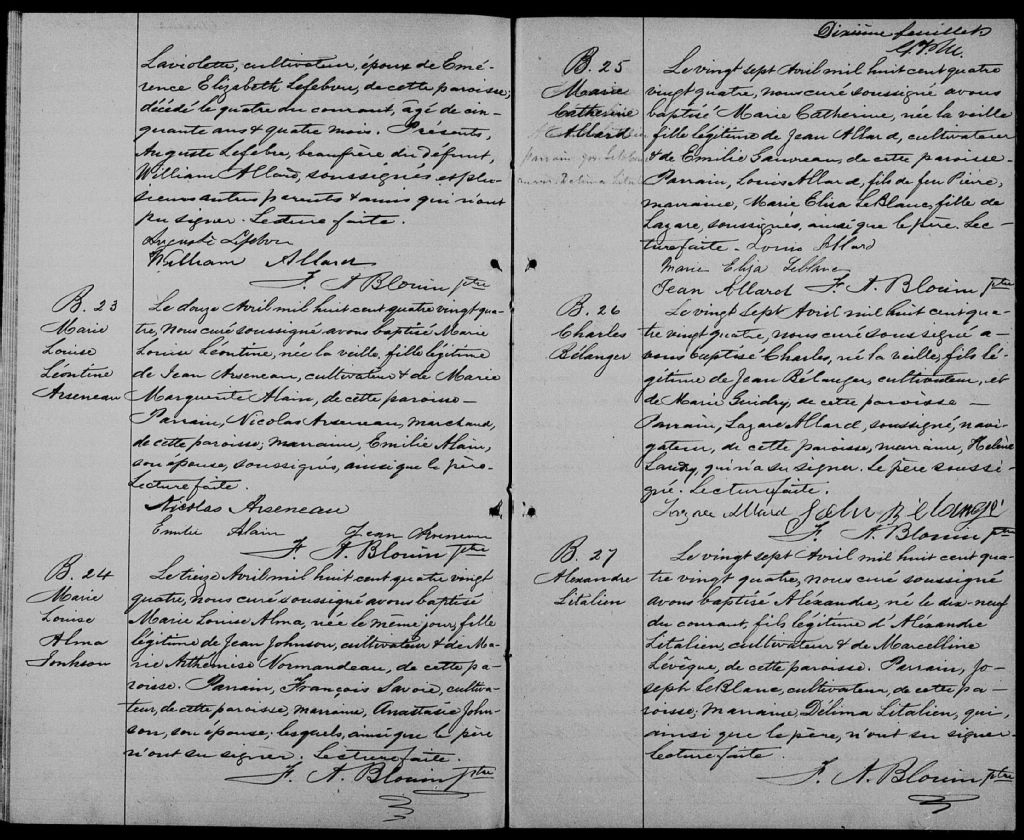 Laviolette, cultivateur, époux de Emé-
rence Elizabeth Lefebvre, de cette paroisse,
décédé le quatre du courant, âgé de cin-
quante ans & quatre mois. Présents,
Auguste Lefebre, beaufrère du défunt,
William Allard, soussignés et plu-
sieurs autres parents & amis qui n'ont
pu signer. Lecture faite.
Auguste Lefebvre
William Allard
F. A. Blouin ptre
B. 23
Marie
Louise
Léontine
Arseneau
Le douze Avril mil huit cent quatre vingt qua-
tre, Nous curé soussigné avons baptisé Marie
Louise Léontine, née la veille, fille légitime
de Jean Arseneau, cultivateur & de Marie
Marguerite Alain, de cette paroisse—
Parrain, Nicolas Arseneau, marchand,
de cette paroisse; marraine, Emilie Alain,
son épouse, soussignés, ainsi que le père.
Lecture faite.
Nicolas Arseneau
Emilie Alain Jean Arseneau
F. A. Blouin ptre
B. 24
Marie
Louise
Alma
Jonhson
Le treize Avril mil huit cent quatre vingt
quatre, nous curé soussigné avons baptisé
Marie Louise Alma, née le même jour, fille
légitime de Jean Johnson, cultivateur & de Ma-
rie Arthémise Normandeau, de cette pa-
roisse. Parrain, François Savoie, cultiva-
teur, de cette paroisse, marraine, Anastasie John-
son, son épouse; lesquels, ainsi que le père
n'ont su signer. Lecture faite.
F. A. Blouin ptre
Dixième feuillet
B. 25
Marie
Catherine
Allard
Le vingt sept Avril mil huit cent quatre
vingt quatre, nous curé soussigné avons
baptisé Marie Catherine, née la veille
fille légitime de Jean Allard, cultivateur
& de Emilie Gauvreau, de cette paroisse.
Parrain, Louis Allard, fils de feu Pierre,
marraine, Marie Elisa LeBlanc, fille de
Lazare, soussignés, ainsi que le père. Lec-
ture faite. Louis Allard
Marie Eliza Leblanc
Jean Allard F. A. Blouin ptre
B. 26
Charles
Bélanger
Le vingt sept Avril mil huit cent qua-
tre vingt quatre, nous curé soussigné a-
vons baptisé Charles, né la veille, fils lé-
gitime de Jean Bélanger, cultivateur, et
de Marie Guidry, de cette paroisse —
Parrain, Lazare Allard, soussigné, navi-
gateur, de cette paroisse, marraine, Hélène
Landry, qui n'a su signer. Le père soussi-
gné. Lecture faite.
Lazare Allard John Bélanger
F. A. Blouin ptre
B. 27
Alexandre
Litalien
Le vingt sept Avril mil huit cent qua-
tre vingt quatre, nous curé soussigné
avons baptisé Aléxandre, né le dix-neuf
du courant, fils légitime d'Aléxandre
Litalien, cultivateur & de Marcelline
Lévêque, de cette paroisse. Parrain, Jo-
seph LeBlanc, cultivateur, de cette pa-
roisse; marraine, Délima Litalien, qui,
ainsi que le père, n'ont su signer.
Lecture faite.
F. A. Blouin ptre